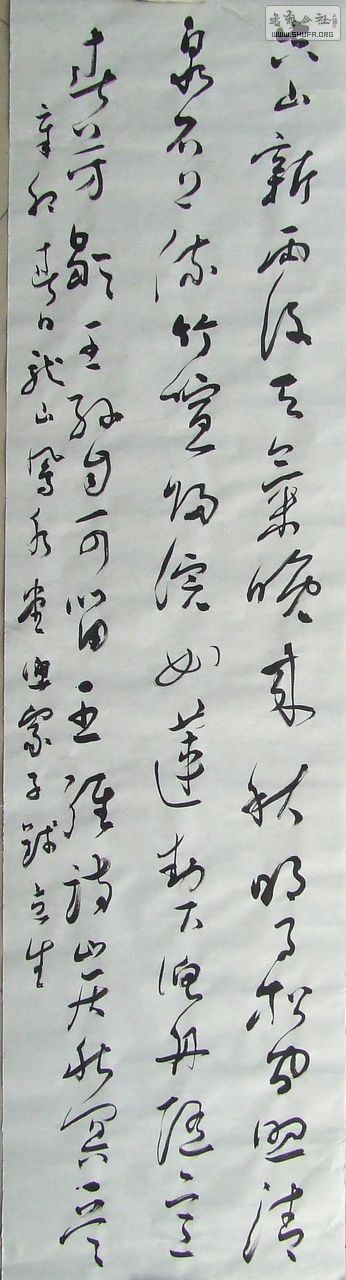 空山新雨後天氣晚來秋明月松間照清
泉石上流竹喧歸浣女蓮動下漁舟隨意
春芳歇王孫自可留王維詩山居秋暝
春日龍山鳳
书艺公社
WWW.SHUFA.ORG